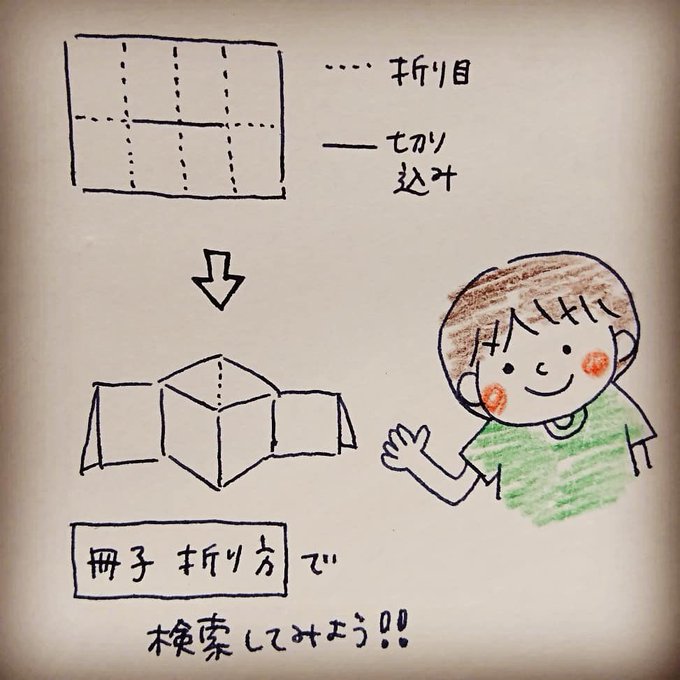 折り目
切り
込み
冊子 折り方で
検索してみよう!!